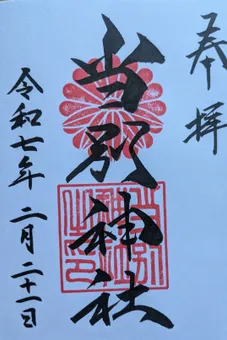 奉拝
当別神社
令和七年 二月二十一日